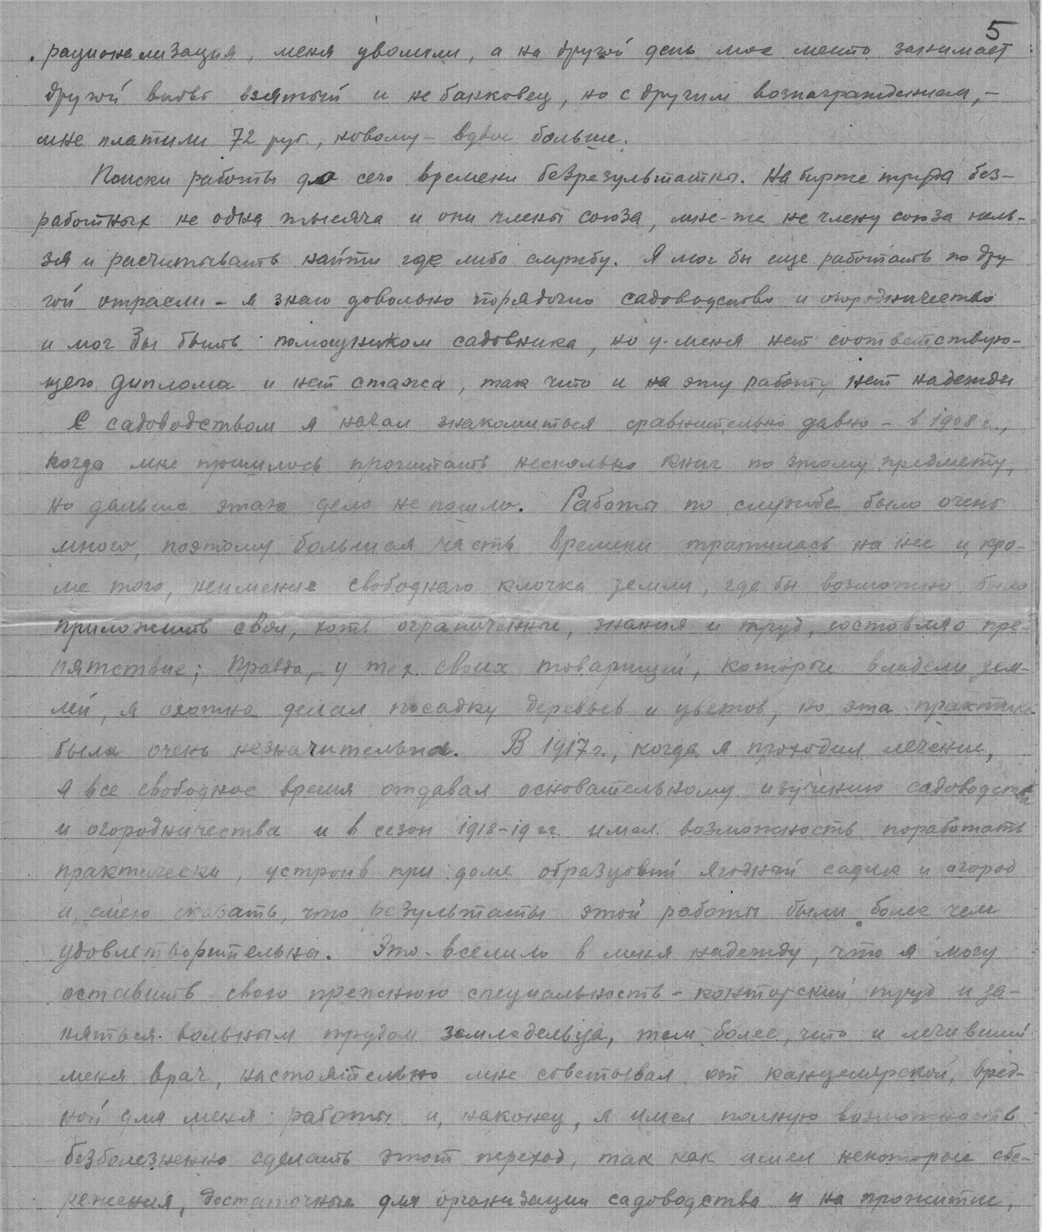 5
рационализация, меня уволили, а на другой день мое место занимает
другой вновь взятый и не банковец, но с другим вознаграждением, -
мне платили 72 руб., новому - вдвое больше.
Поиски работы до сего времени безрезультатны. На бирже труда без-
работных не одна тысяча и они члены союза, мне-же не члену союза нель-
зя и расчитывать найти где либо службу. Я мог бы еще работать по дру
гой отрасли - я знаю довольно порядочно садоводство и огородничество
и мог бы быть помощником садовника, но у меня нет соответствую-
щего диплома и нет стажа, так что и на эту работу нет надежды
С садоводством я начал знакомиться сравнительно давно - в 1908 г.,
когда мне пришлось прочитать несколько книг по этому предмету,
но дальше этого дело не пошло. Работы по службе было очень
много, поэтому большая часть времени тратилась на нее и, кро-
ме того, неимение свободнаго клочка земли, где бы возможно было
приложить свои, хоть ограниченные, знания и труд, составляло пре-
пятствие; Правда, у тех своих товарищей, которые владели зем-
лей, я охотно делал посадку деревьев и цветов, но эта практика
была очень незначительна. В 1917 г., когда я проходил лечение,
я все свободное время отдавал основательному изучению садоводства
и огородничества и в сезон 1918-19 гг. имел возможность поработать
практически, устроив при доме образцовый ягодный садик и огород
и, смею сказать, что результаты этой работы были более чем
удовлетворительны. Это вселило в меня надежду, что я могу
оставить свою прежнюю специальность - конторский труд и за-
няться вольным трудом земледельца, тем более, что и лечивший
меня врач, настоятельно мне советовал от канцелярской, вред-
ной для меня работы и, наконец, я имел полную возможность
безболезненно сделать этот переход, так как имел некоторые сбе-
режения, достаточные для организации садоводства и на прожитие,